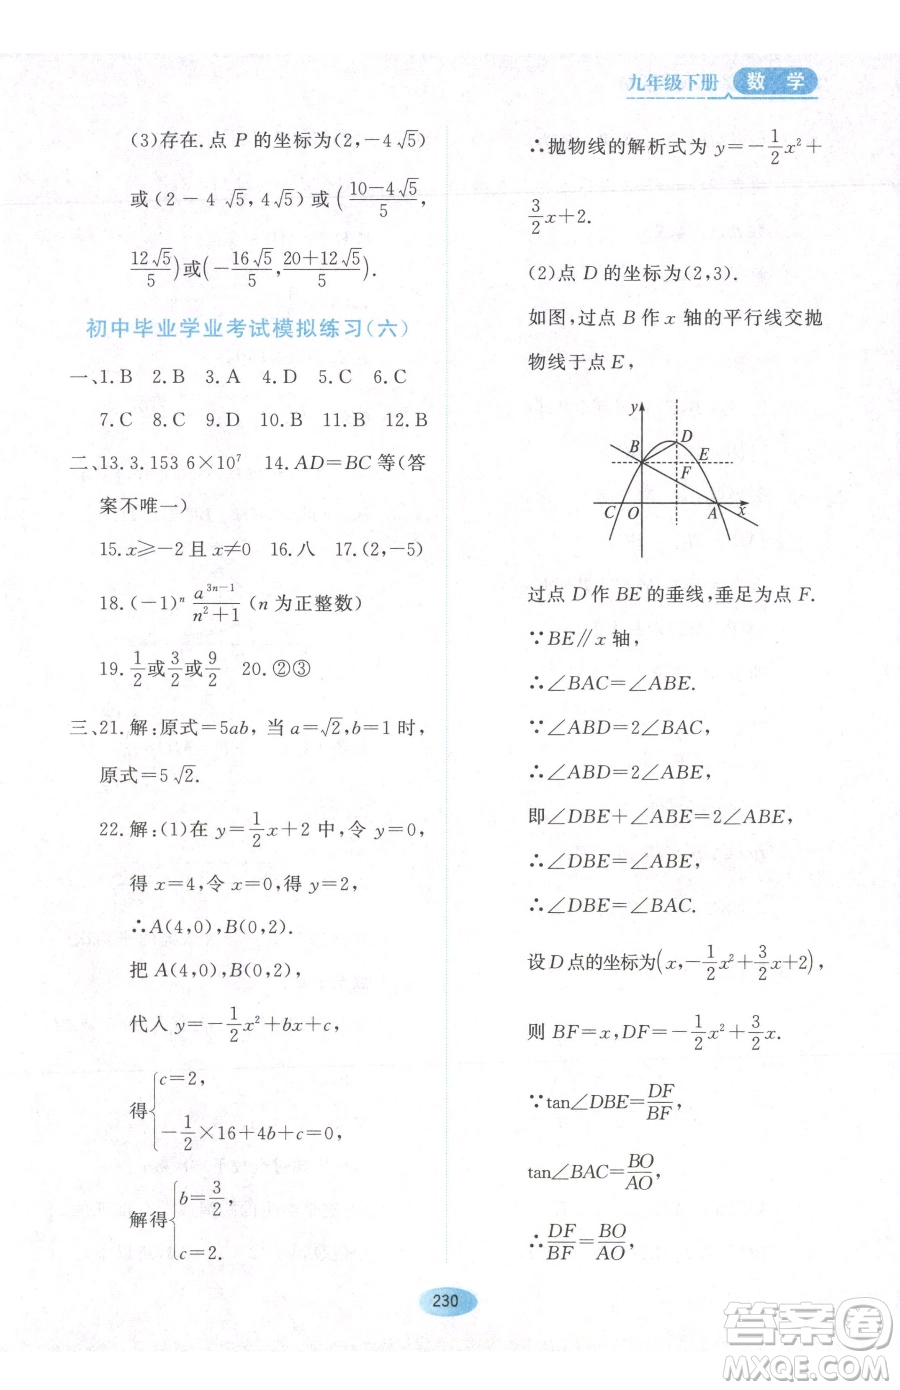 九年级下册 数学
(3)存在.点 P 的坐标为(2,-4√5)
或(2-4√5,4√5)或((10-4√5)/5,
12√5/5)或(-16√5/5,(20+12√5)/5).
初中毕业学业考试模拟练习(六)
一、1.B 2.B 3.A 4.D 5.C 6.C
7.C 8.C 9.D 10.B 11.B 12.B
二、13.3.153 6×10⁷ 14.AD=BC 等(答
案不唯一)
15.x≥-2 且 x≠0 16.八 17.(2,-5)
18.(-1)ⁿ a³ⁿ⁻¹/(n²+1) (n 为正整数)
19.1/2或3/2或9/2 20.②③
三、21.解:原式=5ab,当 a=√2,b=1 时,
原式=5√2.
22.解:(1)在 y=1/2x+2 中,令 y=0,
得 x=4,令 x=0,得 y=2,
∴A(4,0),B(0,2).
把 A(4,0),B(0,2),
代入 y=-1/2x²+bx+c,
得{c=2,
-1/2×16+4b+c=0,
解得{b=3/2,
c=2.
∴抛物线的解析式为 y=-1/2x²+
3/2x+2.
(2)点 D 的坐标为(2,3).
如图,过点 B 作 x 轴的平行线交抛
物线于点 E,
y
B D E
F
C O A x
过点 D 作 BE 的垂线,垂足为点 F.
∵BE∥x 轴,
∴∠BAC=∠ABE.
∵∠ABD=2∠BAC,
∴∠ABD=2∠ABE,
即∠DBE+∠ABE=2∠ABE,
∴∠DBE=∠ABE,
∴∠DBE=∠BAC.
设 D 点的坐标为(x,-1/2x²+3/2x+2),
则 BF=x,DF=-1/2x²+3/2x.
∵tan∠DBE=DF/BF,
tan∠BAC=BO/AO,
∴DF/BF=BO/AO,
230
答案圈
MXQE.COM